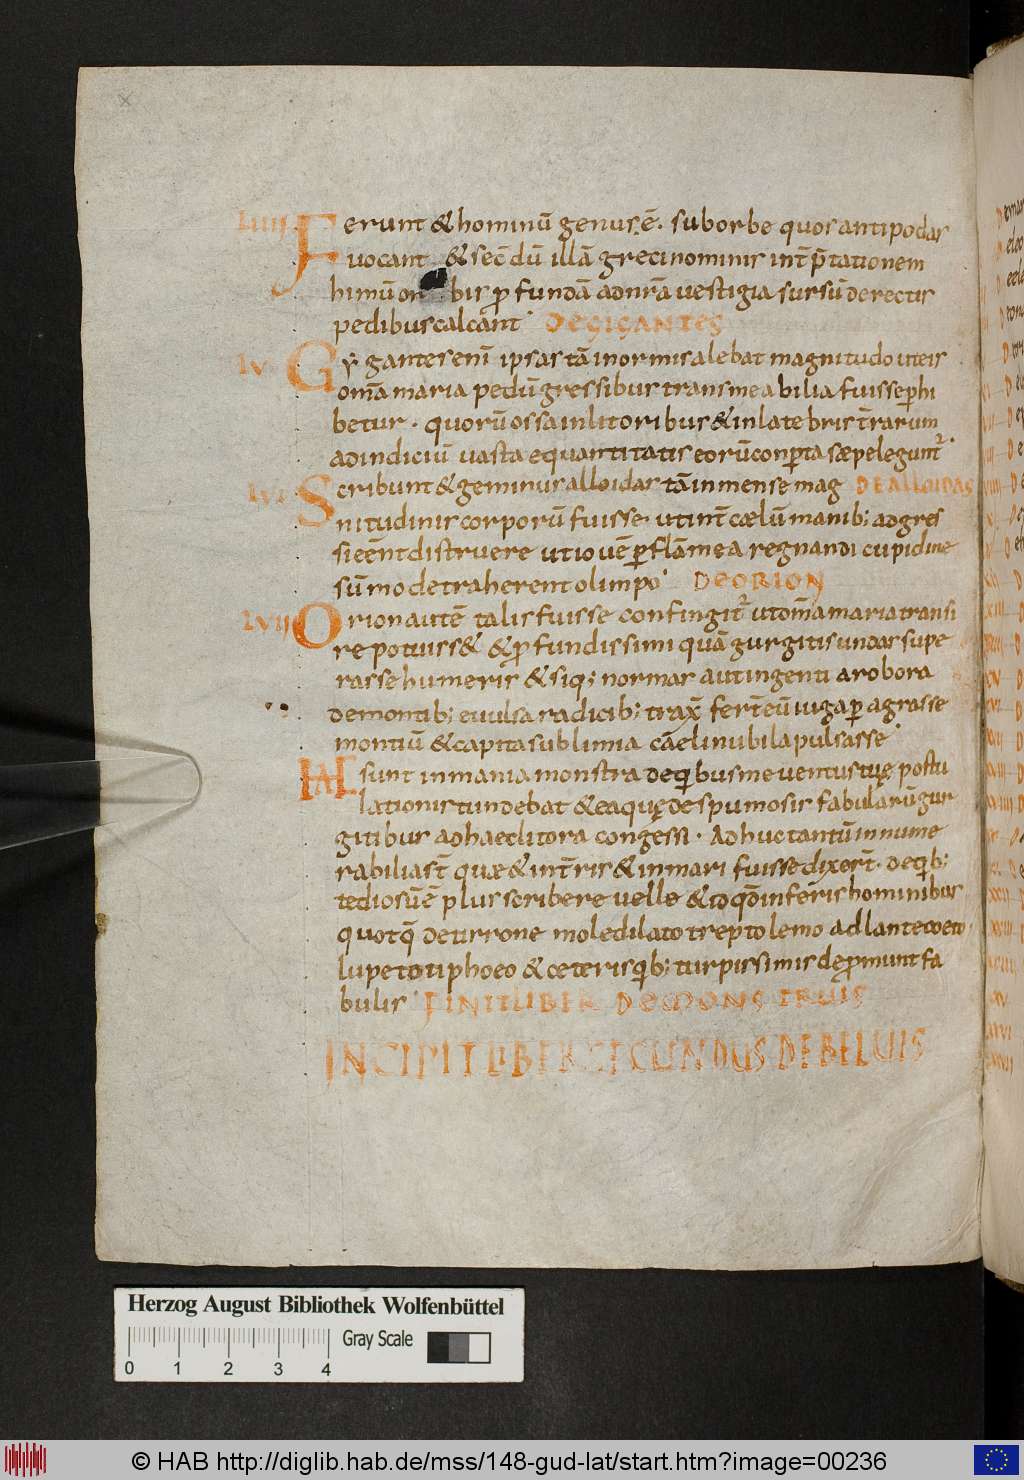 LIIII Ferunt & hominū genus ē. sub orbe quos antipodas
uocant & sec̄dū illā greci nominis int̄p̄tationem
himū on bis ꝓfundā ad nr̄a uestigia sursū derectis
pedibus calcant DE GIGANTES
LV Gygantes enī ipsas tā inormis alebat magnitudo ut eis
om̄a maria pedū gressibus transmeabilia fuisse ꝑhi
betur. quorū ossa in litoribus & in latebris t̄rarum
ad indiciū uastae quantitatis eorū conꝑta sæpe leguntr̄.
LVI Scribunt & geminus alloidas tā inmense mag DE ALLOIDAS
nitudinis corporū fuisse. ut int̄ cælū manib; adgres
si eēnt distruere ut iouē ꝑ flāmea regnandi cupidine
sūmo detraherent olimpo DE ORION
LVII Orion autē talis fuisse confingitr̄ ut om̄a maria transi
re potuiss& & ꝓfundissimi quā gurgitis undas supe
rasse humeris & siq; normas aut ingenti a robora
de montib; euulsa radicib; trax̄ fert̄ eū iuga ꝑagrasse
montiū & capita sublimia cāeli nubila pulsasse
HAEc sunt inmania monstra de qibus me uentus tuę postu
lationis tundebat & ea quę de spumosis fabularū gur
gitibus ad haec litora congessi. Adhuc tantū innume
rabilia st̄ quæ & in t̄ris & in mari fuisse dixer̄t. de qib;
tediosū ē plus scribere uelle & id qd̄ inferis hominibus
quotq̄ de tirrone mole dilato treptolemo adlante coeto
lupeto tiphoeo & ceteris qib; turpissimis depromunt fa
bulis FINIT LIBER DE MONSTRUIS
INCIPIT LIBER SECUNDUS DE BELUIS
Herzog August Bibliothek Wolfenbüttel
Gray Scale
0 1 2 3 4
© HAB http://diglib.hab.de/mss/148-gud-lat/start.htm?image=00236